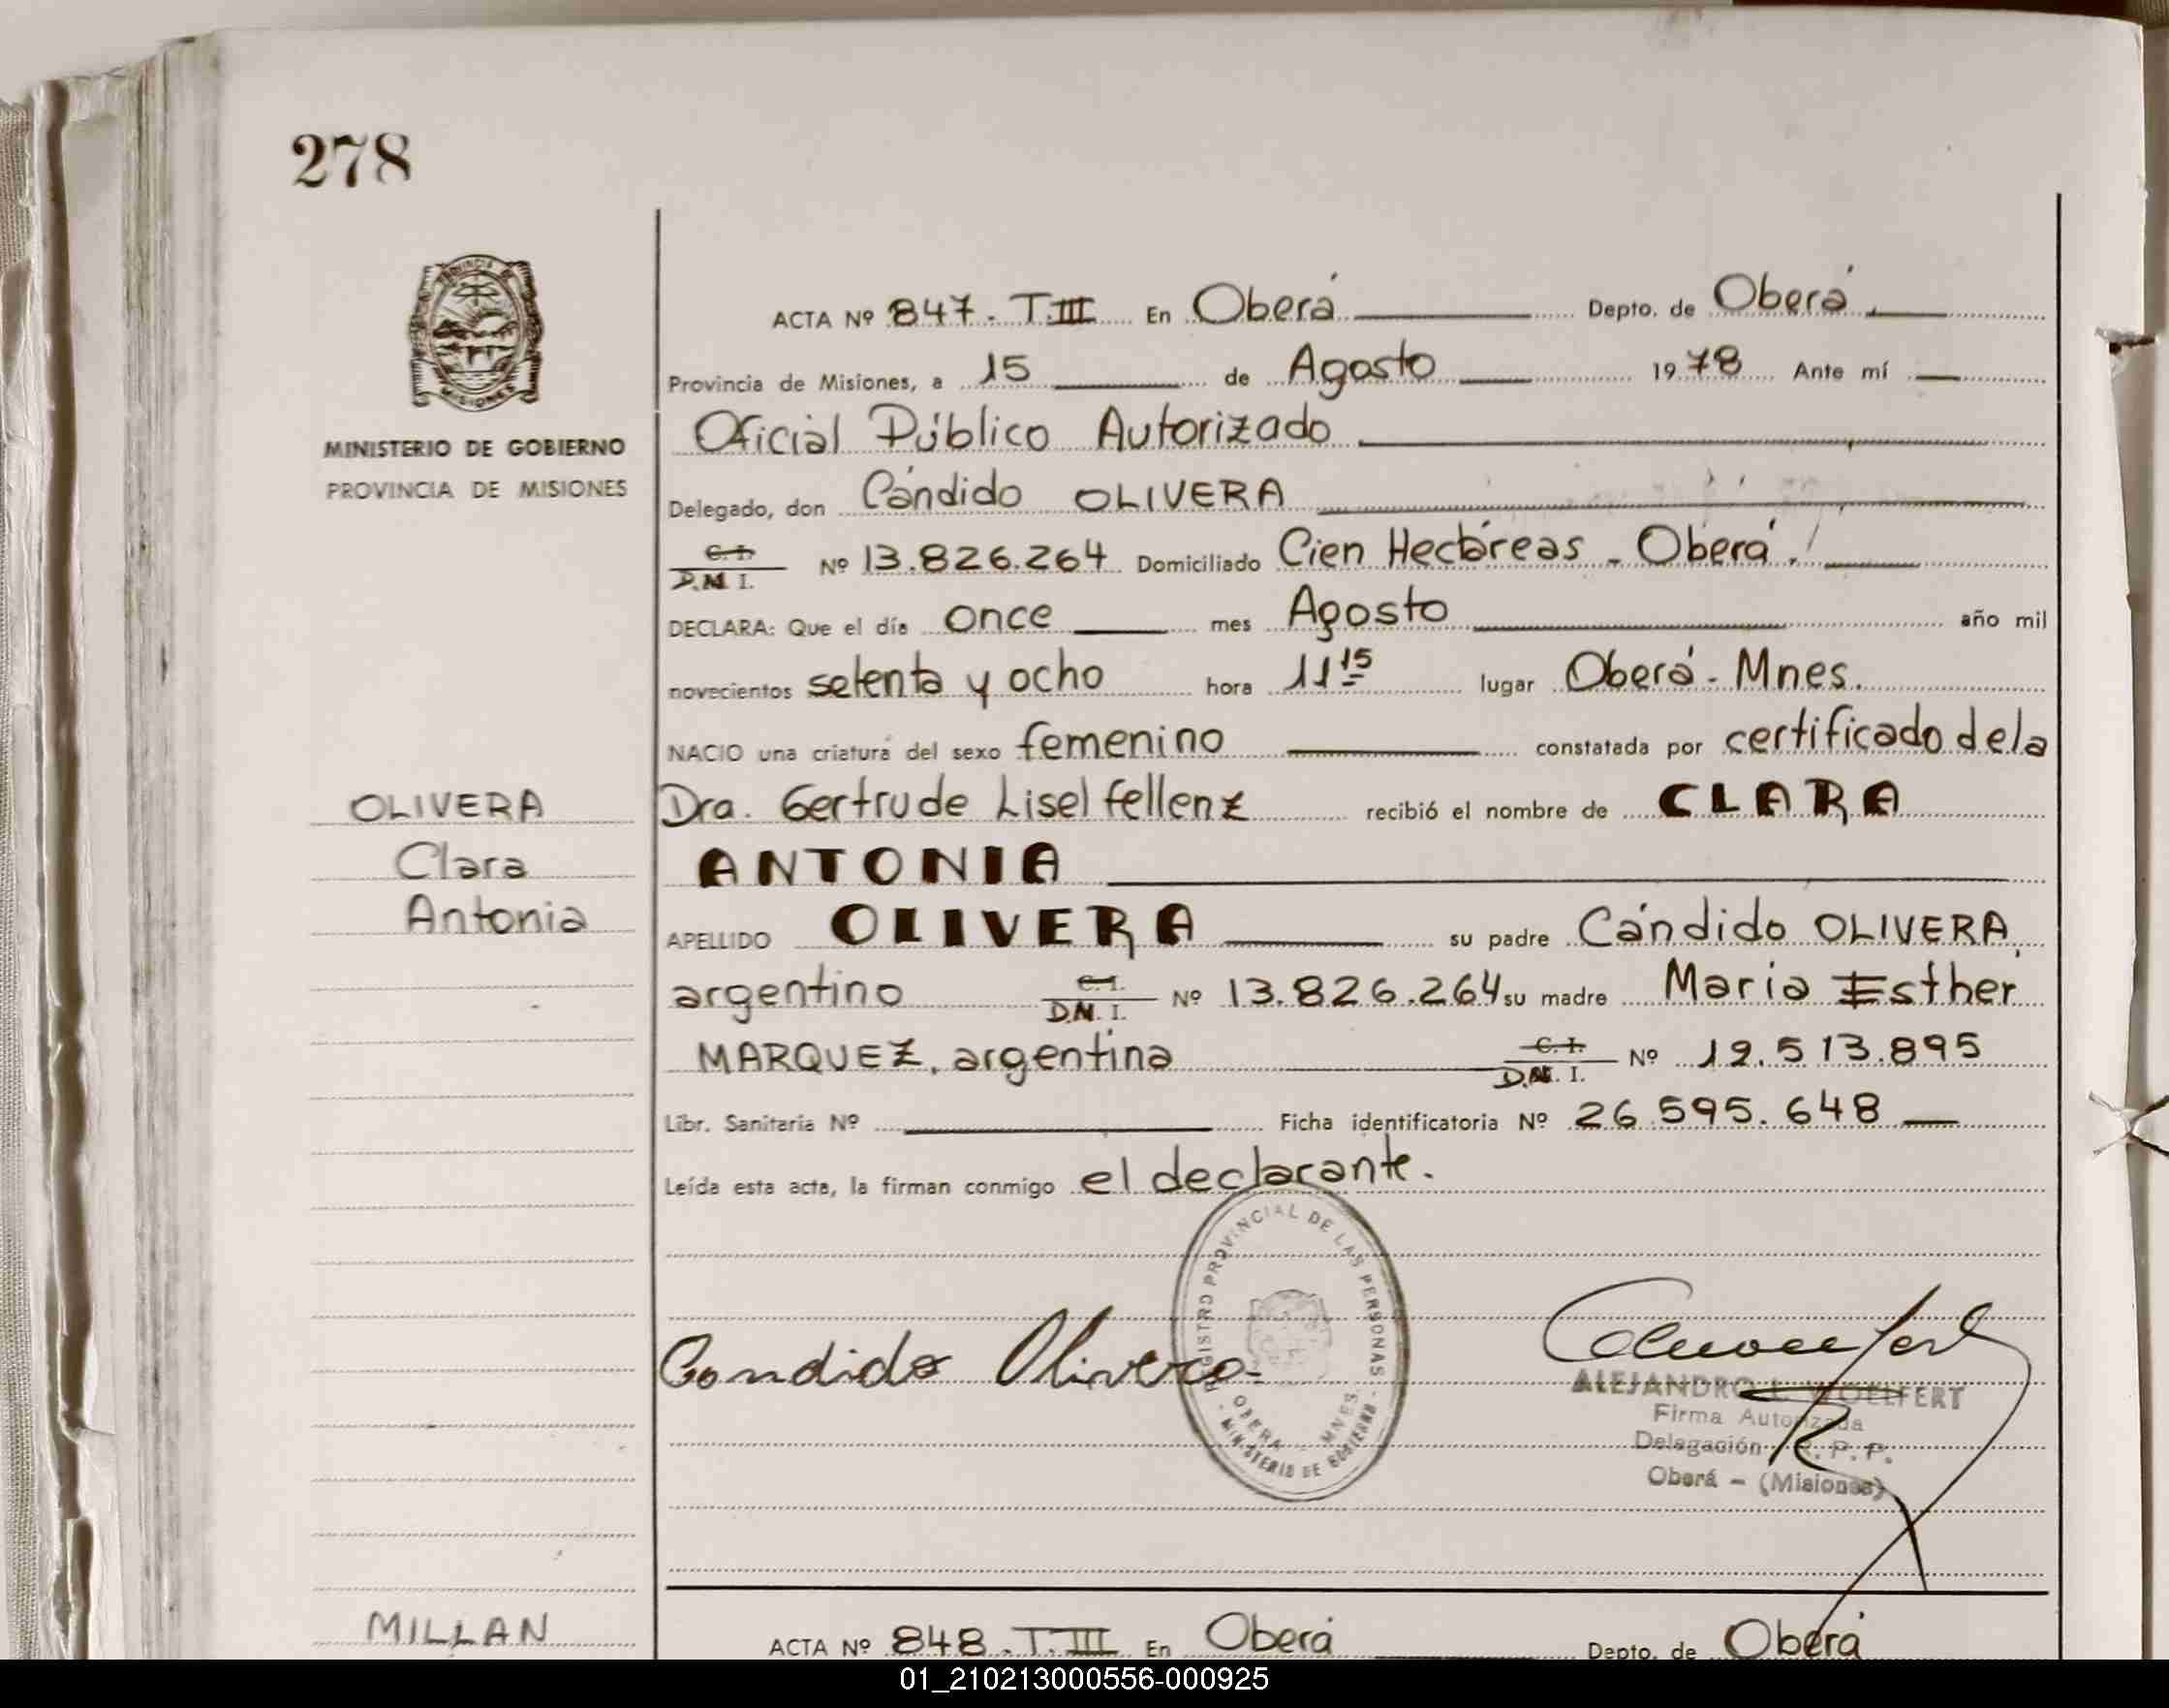 278
PROVINCIA DE
MISIONES
MINISTERIO DE GOBIERNO
PROVINCIA DE MISIONES
ACTA Nº 847. T.III En Oberá Depto. de Oberá
Provincia de Misiones, a 15 de Agosto 1978 Ante mí
Oficial Público Autorizado
Delegado, don Cándido OLIVERA
C. I. D.N.I. Nº 13.826.264 Domiciliado Cien Hectáreas - Oberá.
DECLARA: Que el día once mes Agosto año mil
novecientos setenta y ocho hora 11 15 lugar Oberá - Mnes.
NACIO una criatura del sexo femenino constatada por certificado de la
Dra. Gertrude Lisel Fellenz recibió el nombre de CLARA
ANTONIA
APELLIDO OLIVERA su padre Cándido OLIVERA,
argentino C. I. D.N.I. Nº 13.826.264 su madre Maria Esther
MARQUEZ, argentina C. I. D.N.I. Nº 12.513.895
Libr. Sanitaria Nº Ficha identificatoria Nº 26.595.648
Leída esta acta, la firman conmigo el declarante.
OLIVERA
Clara
Antonia
REGISTRO PROVINCIAL DE LAS PERSONAS
OBERA - MNES
- MINISTERIO DE GOBIERNO -
Candido Olivera
ALEJANDRO L. WOELFERT
Firma Autorizada
Delegación R. P. P.
Oberá - (Misiones)
MILLAN
ACTA Nº 848. T.III En Oberá Depto. de Oberá
01_210213000556-000925